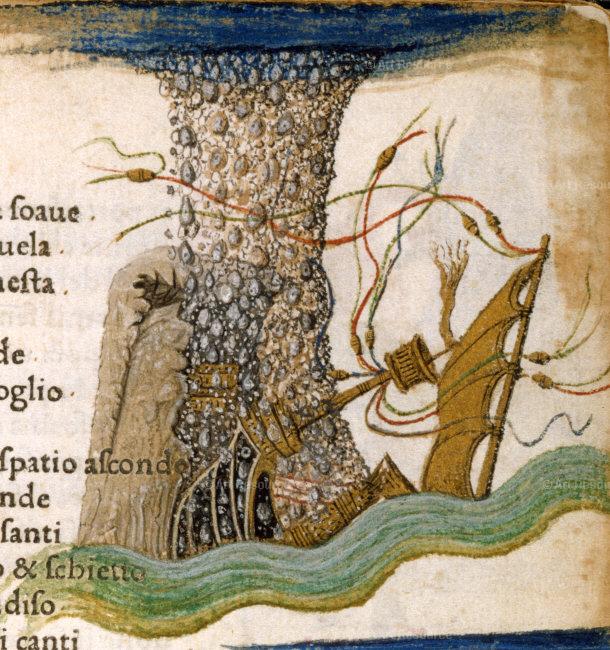 ſoaue .
uela .
neſta .
de
oglio
ſpatio aſconde
nde
ſanti
o & ſchietto
diſo
i canti